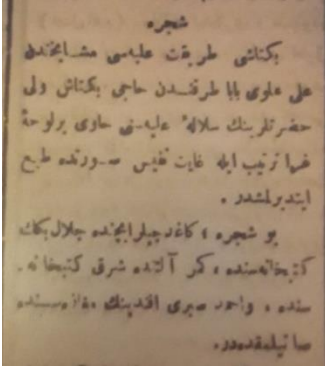 شجره
بكتاشی طریقت علیه‌سی مشایخندن
علی علوی بابا طرفندن حاجی بكتاش ولی
حضرتلرینك سلالهٔ علیه‌سنی حاوی برلوحهٔ
ترتیب ایله غایت نفیس صورتده طبع
ایتدیرلمشدر .
بو شجره ، كاغدجیلر ایچنده جلال بكك
كتبخانه‌سنده ، كمر آلتنده شرق كتبخانه‌
سنده ، واحمد صبری افندینك مغازه‌سنده
صاتیلمقده‌در .